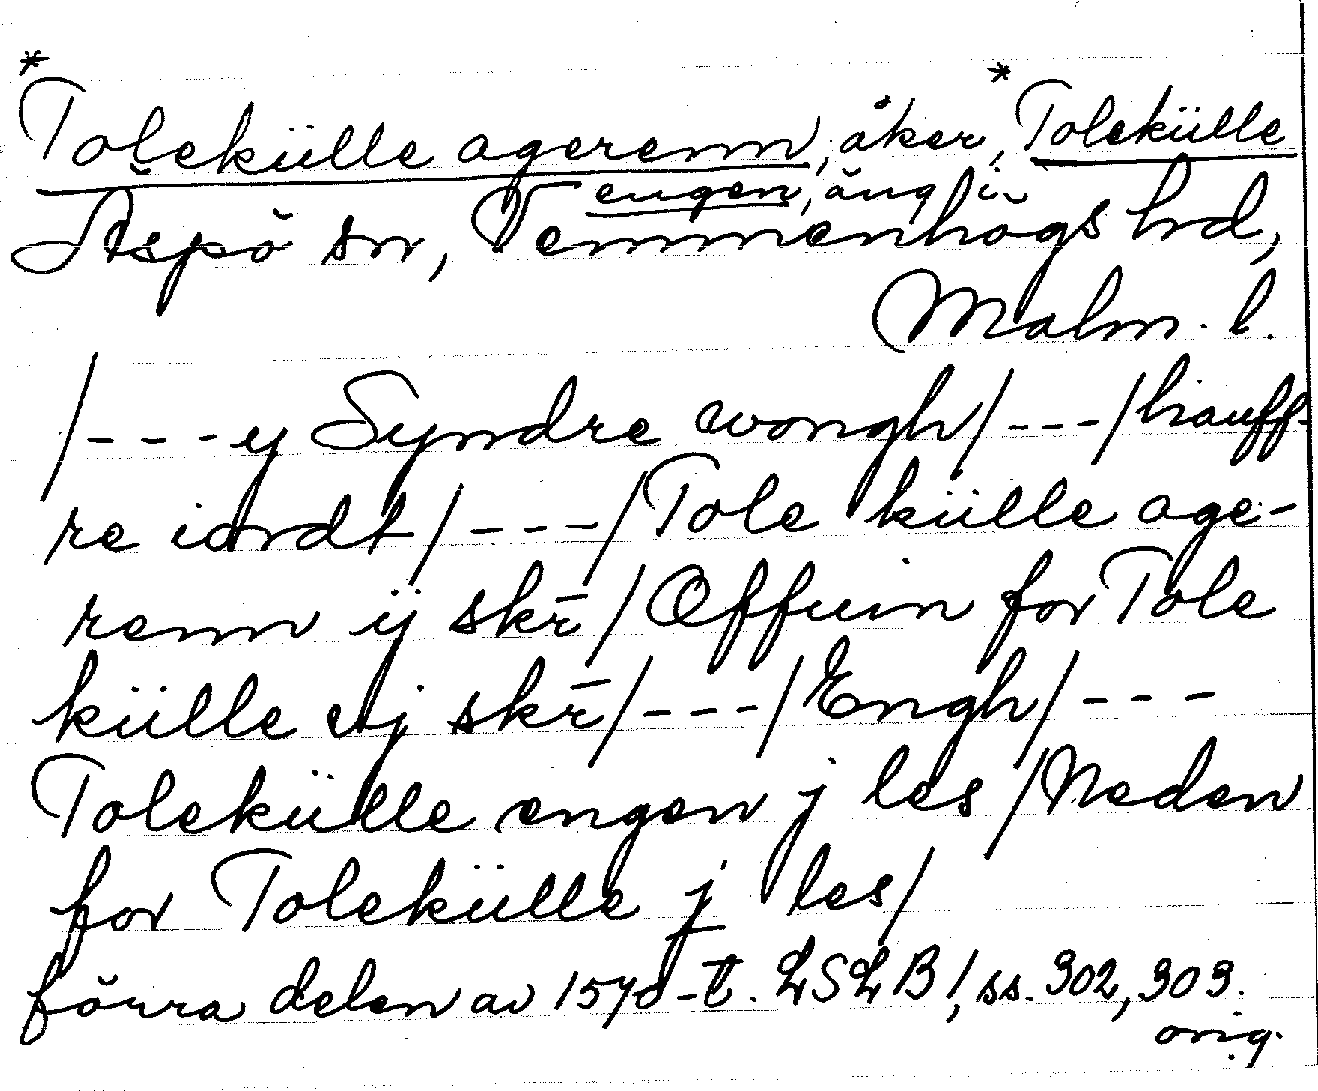 *Tolekülle agerenn, åker, *Tolekülle
engen, äng i
Äspö sn, Vemmenhögs hrd,
Malm. l.
/---y Syndre wongh/---/hauff-
re iordt/---/Tole külle age-
renn ij skr̄/Offuin for Tole
külle vj skr̄/---/Engh/---
Tolekülle engen j les/Neden
for Tolekülle j les/
förra delen av 1570-t. LSLB!, ss. 302, 303.
orig.